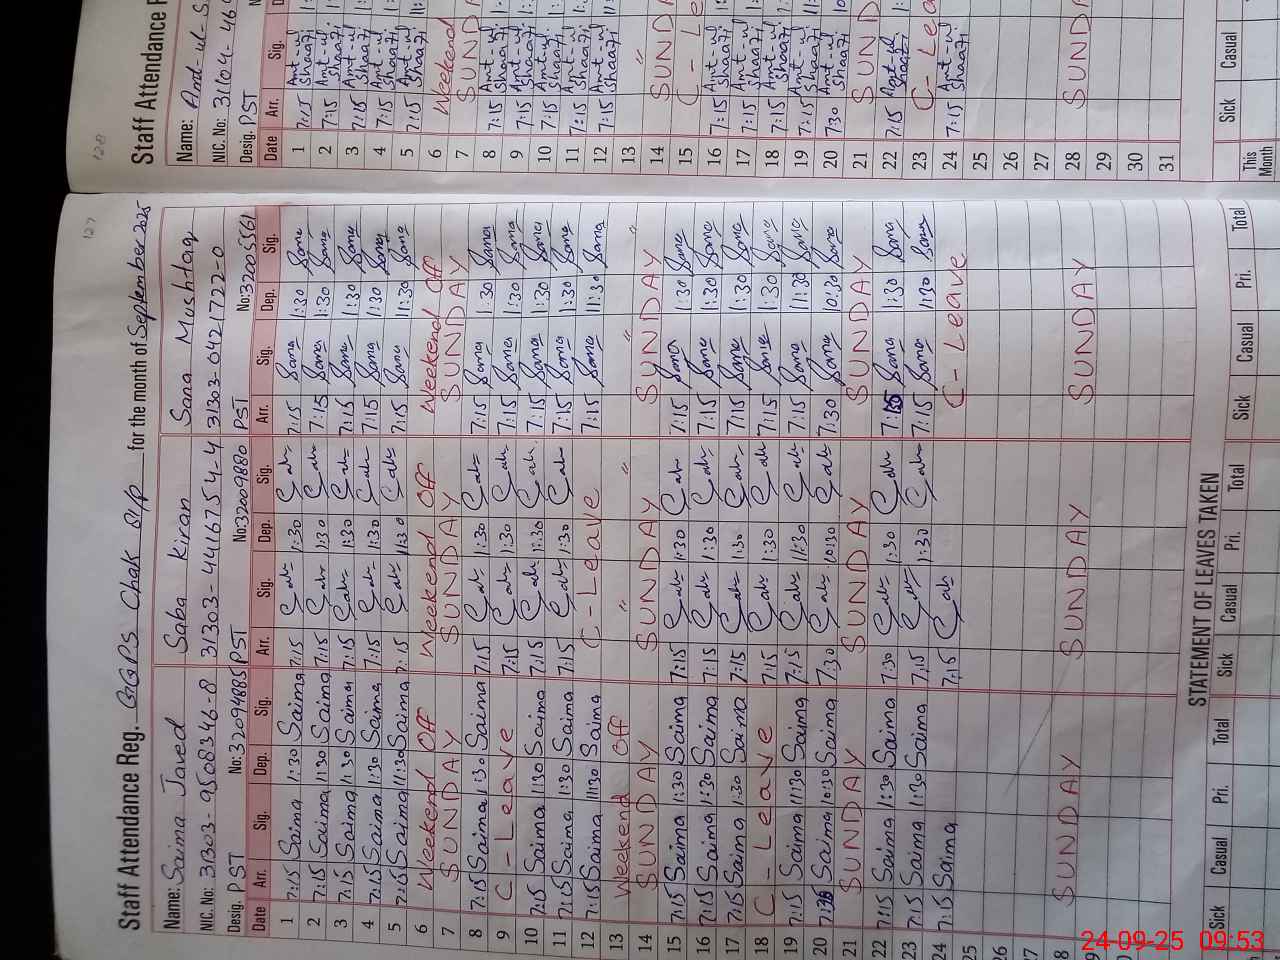 127
Staff Attendance Reg. GGPS Chak 81/P for the month of September 2025
Name: Saima Javed Saba Kiran Sana Mushtaq
NIC. No: 31303-9508346-8 31303-4416754-4 31303-0421722-0
Desig. PST No:32094885 PST No:32009880 PST No:32005561
Date Arr. Sig. Dep. Sig. Arr. Sig. Dep. Sig. Arr. Sig. Dep. Sig.
1 7:15 Saima 1:30 Saima 7:15 1:30 7:15 Sana 1:30 Sana
2 7:15 Saima 1:30 Saima 7:15 1:30 7:15 Sana 1:30 Sana
3 7:15 Saima 1:30 Saima 7:15 1:30 7:15 Sana 1:30 Sana
4 7:15 Saima 1:30 Saima 7:15 1:30 7:15 Sana 1:30 Sana
5 7:15 Saima 11:30 Saima 7:15 11:30 7:15 Sana 11:30 Sana
6 Weekend Off Weekend Off Weekend Off
7 SUNDAY SUNDAY SUNDAY
8 7:15 Saima 1:30 Saima 7:15 1:30 7:15 Sana 1:30 Sana
9 C - Leave 7:15 1:30 7:15 Sana 1:30 Sana
10 7:15 Saima 1:30 Saima 7:15 1:30 7:15 Sana 1:30 Sana
11 7:15 Saima 1:30 Saima 7:15 1:30 7:15 Sana 1:30 Sana
12 7:15 Saima 11:30 Saima C - Leave 7:15 Sana 11:30 Sana
13 Weekend Off " " "
14 SUNDAY SUNDAY SUNDAY
15 7:15 Saima 1:30 Saima 7:15 1:30 7:15 Sana 1:30 Sana
16 7:15 Saima 1:30 Saima 7:15 1:30 7:15 Sana 1:30 Sana
17 7:15 Saima 1:30 Saima 7:15 1:30 7:15 Sana 1:30 Sana
18 C - Leave 7:15 1:30 7:15 Sana 1:30 Sana
19 7:15 Saima 11:30 Saima 7:15 11:30 7:15 Sana 11:30 Sana
20 7:30 Saima 10:30 Saima 7:30 10:30 7:30 Sana 10:30 Sana
21 SUNDAY SUNDAY SUNDAY
22 7:15 Saima 1:30 Saima 7:30 1:30 7:15 Sana 1:30 Sana
23 7:15 Saima 1:30 Saima 7:15 1:30 7:15 Sana 1:30 Sana
24 7:15 Saima 7:15 C - Leave
25
26
27
28 SUNDAY SUNDAY SUNDAY
STATEMENT OF LEAVES TAKEN
Sick Casual Pri. Total Sick Casual Pri. Total Sick Casual Pri. Total
128
Staff Attendance R
Name: Amt-ul-S
NIC. No: 31104-460
Desig. PST
Date Arr. Sig.
1 7:15 Amt-ul Shaafi
2 7:15 Amt-ul Shaafi
3 7:15 Amt-ul Shaafi
4 7:15 Amt-ul Shaafi
5 7:15 Amt-ul Shaafi
6 Weekend
7 SUNDA
8 7:15 Amt-ul Shaafi
9 7:15 Amt-ul Shaafi
10 7:15 Amt-ul Shaafi
11 7:15 Amt-ul Shaafi
12 7:15 Amt-ul Shaafi
13 "
14 SUNDA
15 C - Le
16 7:15 Amt-ul Shaafi
17 7:15 Amt-ul Shaafi
18 7:15 Amt-ul Shaafi
19 7:15 Amt-ul Shaafi
20 7:30 Amt-ul Shaafi
21 SUND
22 7:15 Amt-ul Shaafi
23 C - Lea
24 7:15 Amt-ul Shaafi
25
26
27
28 SUNDA
29
30
31
Sick Casual
This Month
24-09-25 09:53